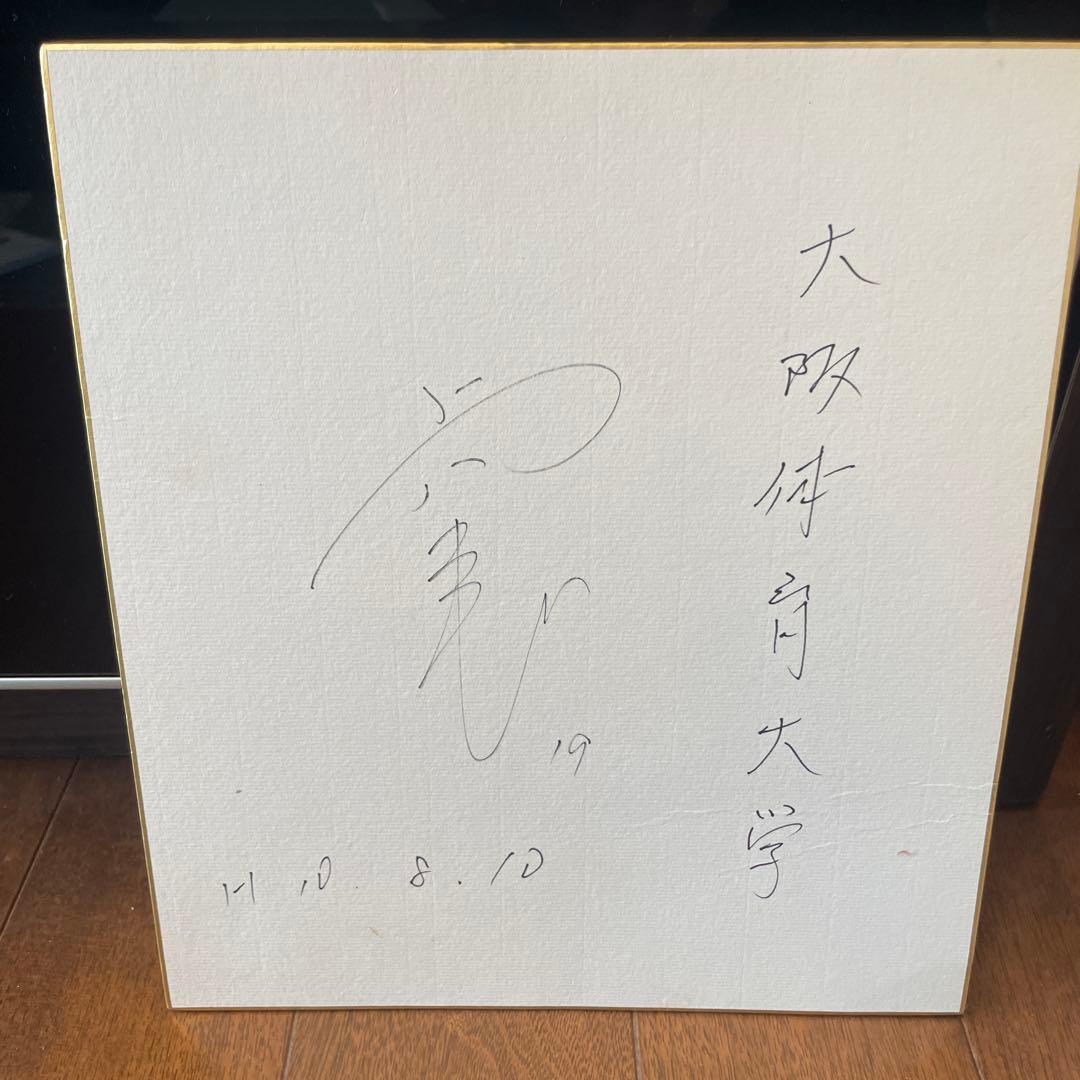 大阪体育大学
19
H10.8.10